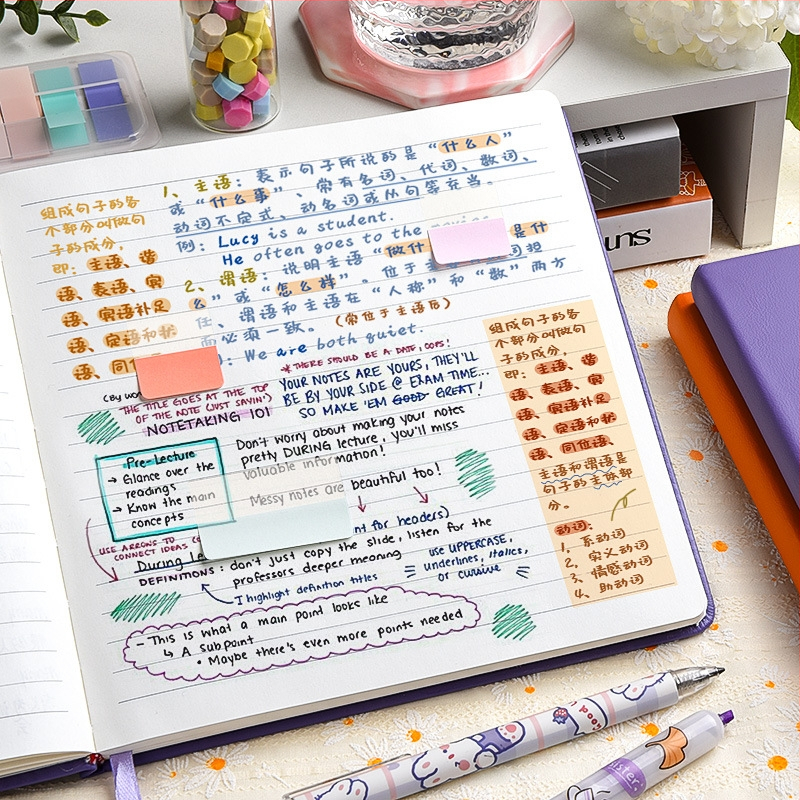 组成句子的各
个部分叫做句
子的成分,
即：主语、谓
语、表语、宾
语、宾语补足
语、定语和状
语、同位
1、主语：表示句子所说的是“什么人”
或“什么事”、常有名词、代词、数词、
动词不定式、动名词或从句等充当。
例：Lucy is a student.
He often goes to the
2、谓语：说明主语“做什 是什
么”或“怎么样”。位于主 词担
任、谓语和主语在“人称”和“数”两方
面必须一致。（常位于主语后）
: We are both quiet.
(By wo
* THERE SHOULD BE A DATE, OOPS!
THE TITLE GOES AT THE TOP
OF THE NOTE (JUST SAYIN')
NOTETAKING 101
YOUR NOTES ARE YOURS, THEY'LL
BE BY YOUR SIDE @ EXAM TIME...
SO MAKE 'EM GOOD GREAT!
Pre-Lecture
→ Glance over the
readings
→ Know the main
concepts
Don't worry about making your notes
pretty DURING lecture, you'll miss
valuable information!
Messy notes are beautiful too!
USE ARROWS TO
CONNECT IDEAS
nt for headers)
During Le
DEFINITIONS: don't just copy the slide, listen for the
professors deeper meaning
I highlight definition titles
use UPPERCASE,
underlines, italics,
or cursive
- This is what a main point looks like
↳ A subpoint
• Maybe there's even more points needed
组成句子的各
个部分叫做句
子的成分,
即：主语、谓
语、表语、宾
语、宾语补足
语、定语和状
语、同位语、
主语和谓语是
句子的主体部
分。
动词：
1、系动词
2、实义动词
3、情感动词
4、助动词